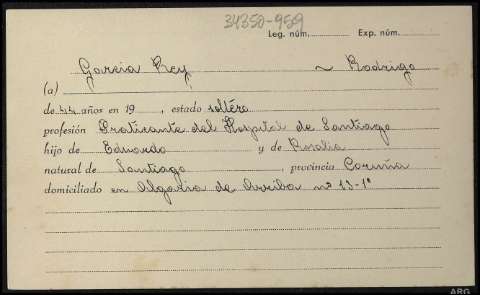 34350-959
Leg. núm. Exp. núm.
García Rey ~ Rodrigo
(a)
de 44 años en 19 , estado soltéro
profesión Praticante del Hospital de Santiago
hijo de Eduardo y de Rosalia
natural de Santiago , provincia Coruña
domiciliado en Algalia de Arriba nº 13-1º
ARG